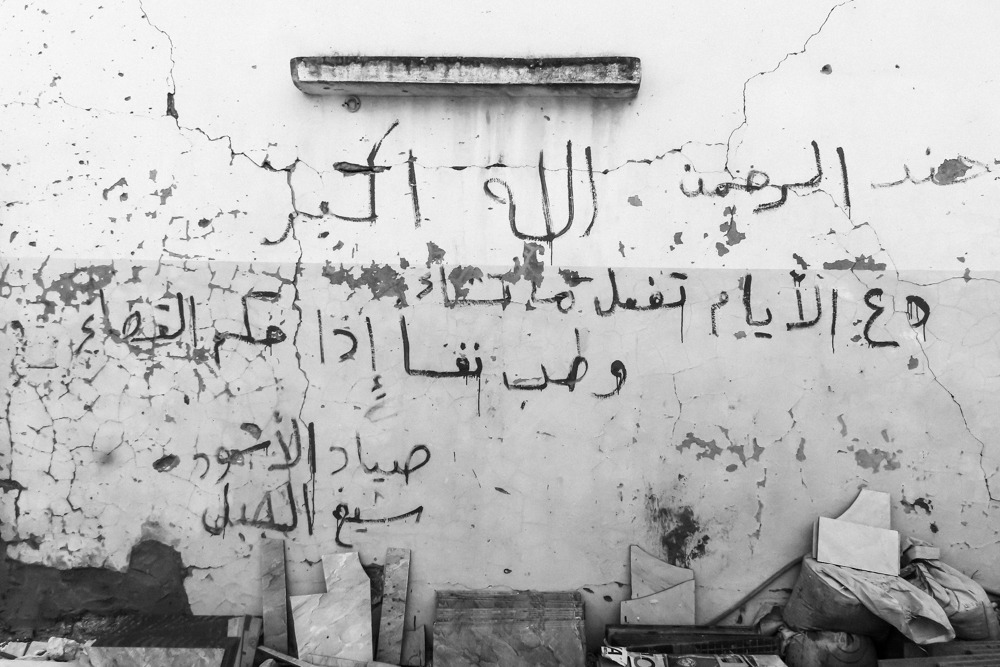 جند الرحمن الله اكبر
دع الأيام تفعل ما تشاء
وطب نفسا إذا حكم القضاء
صياد الأسود
سبع